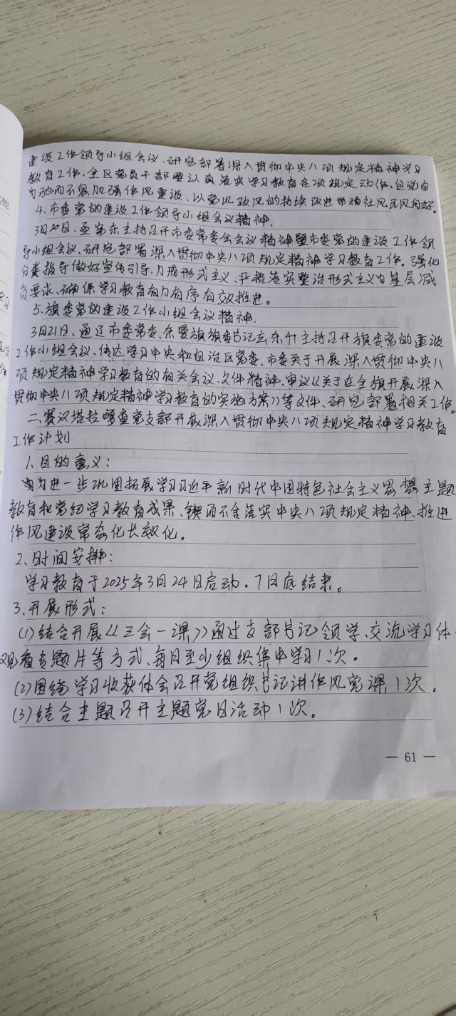 建设工作领导小组会议,研究部署深入贯彻中央八项规定精神学习
教育工作,全区党员干部要认真落实学习教育各项规定动作,自觉由
内而外加强作风建设,以党风政风的持续改进带动社风民风向好。
4.市委党的建设工作领导小组会议精神。
3月20日,主持召开市委常委会会议精神暨市委党的建设工作领
导小组会议,研究部署深入贯彻中央八项规定精神学习教育工作,强化
分类指导做好宣传引导,力戒形式主义,升落实整治形式主义为基层减
负要求,确保学习教育有力有序有效推进。
5.旗委党的建设工作领导小组会议精神。
3月21日,通辽市委常委、奈曼旗旗委书记主持召开旗委党的建设
工作小组会议,传达学习中央和自治区党委、市委关于开展深入贯彻中央八
项规定精神学习教育的相关会议、文件精神,审议《关于在全旗开展深入
贯彻中央八项规定精神学习教育的实施方案》等文件,研究部署相关工作。
二、嘎查党支部开展深入贯彻中央八项规定精神学习教育
工作计划
1.目的意义:
为进一步巩固拓展学习习近平新时代中国特色社会主义思想主题
教育和党纪学习教育成果,锲而不舍落实中央八项规定精神,推进
作风建设常态化长效化。
2.时间安排:
学习教育于2025年3月24日启动,7月底结束。
3.开展形式:
(1)结合开展《三会一课》通过支部书记领学、交流学习体
观看专题片等方式,每月至少组织集中学习1次。
(2)围绕学习收获体会召开党组织书记讲作风党课1次。
(3)结合主题召开主题党日活动1次。
— 61 —